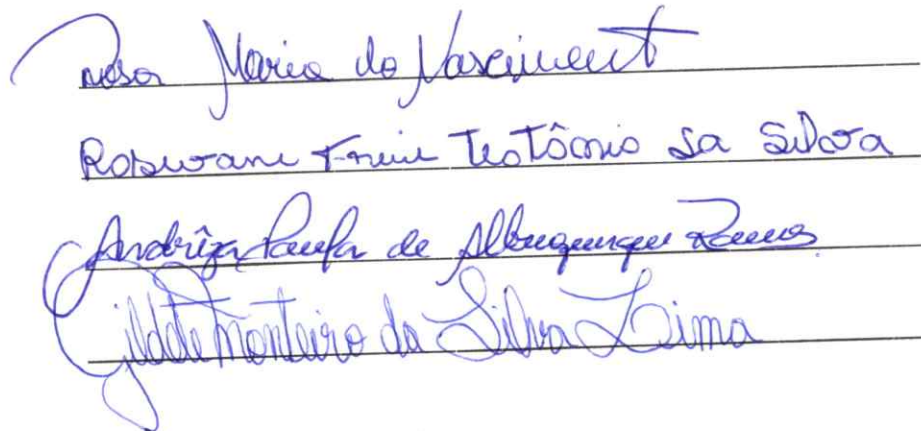 Rosa Maria do Nasciment
Rosivani Freire Teotônio da Silva
Andrêza Paula de Albuquerque Ramos
Gildete Monteiro da Silva Lima